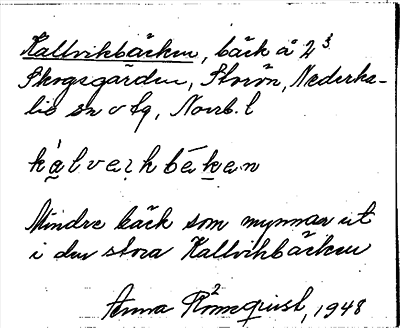 Kallvikbäcken, bäck å 2³
Skogsgärden, Storön, Nederka-
lix sn o tg, Norrb. l
kàlveɪkbẹ́kɐn
Mindre bäck som mynnar ut
i den stora Kallvikbäcken
Anna Rönnquist, 1948